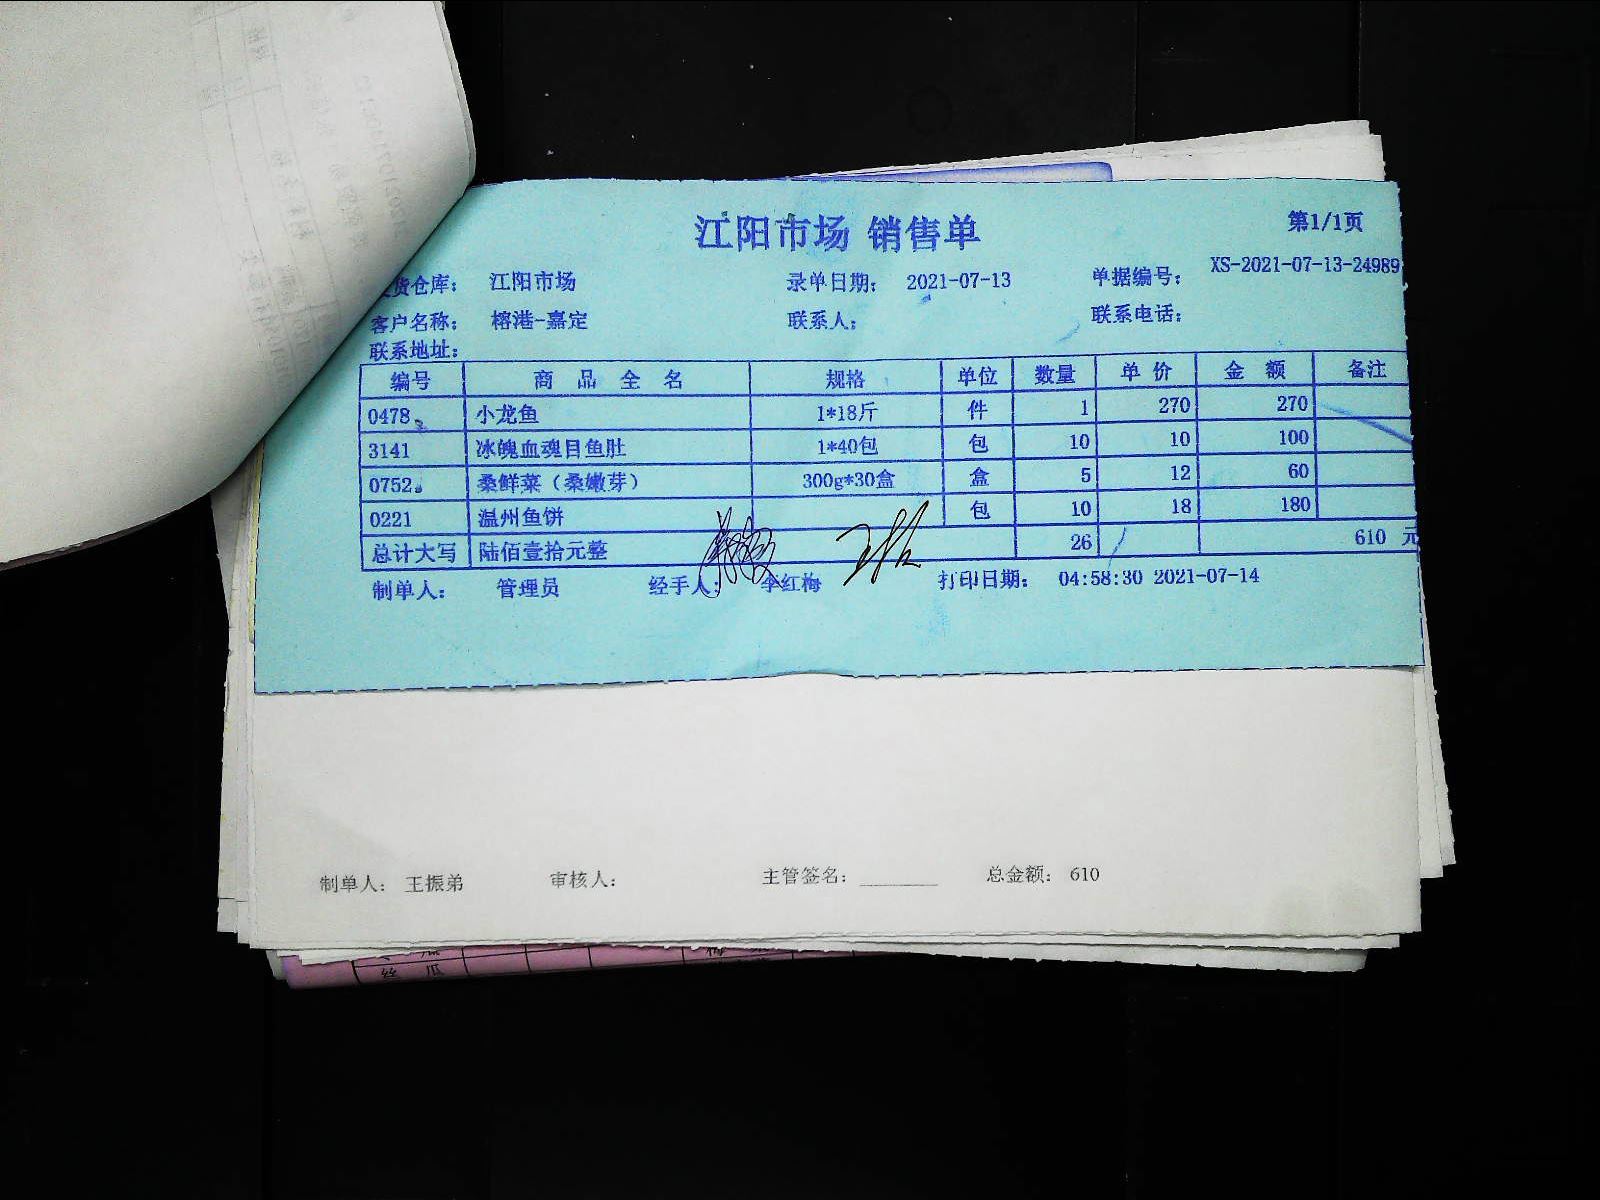 江阳市场 销售单
第1/1页
货仓库： 江阳市场 录单日期： 2021-07-13 单据编号： XS-2021-07-13-24989
客户名称： 榕港-嘉定 联系人： 联系电话：
联系地址：
编号 商品全名 规格 单位 数量 单价 金额 备注
0478 小龙鱼 1*18斤 件 1 270 270
3141 冰魄血魂目鱼肚 1*40包 包 10 10 100
0752 桑鲜菜（桑嫩芽） 300g*30盒 盒 5 12 60
0221 温州鱼饼 包 10 18 180
总计大写 陆佰壹拾元整 26 610 元
制单人： 管理员 经手人： 李红梅 打印日期： 04:58:30 2021-07-14
制单人： 王振弟 审核人： 主管签名： 总金额： 610
丝 瓜